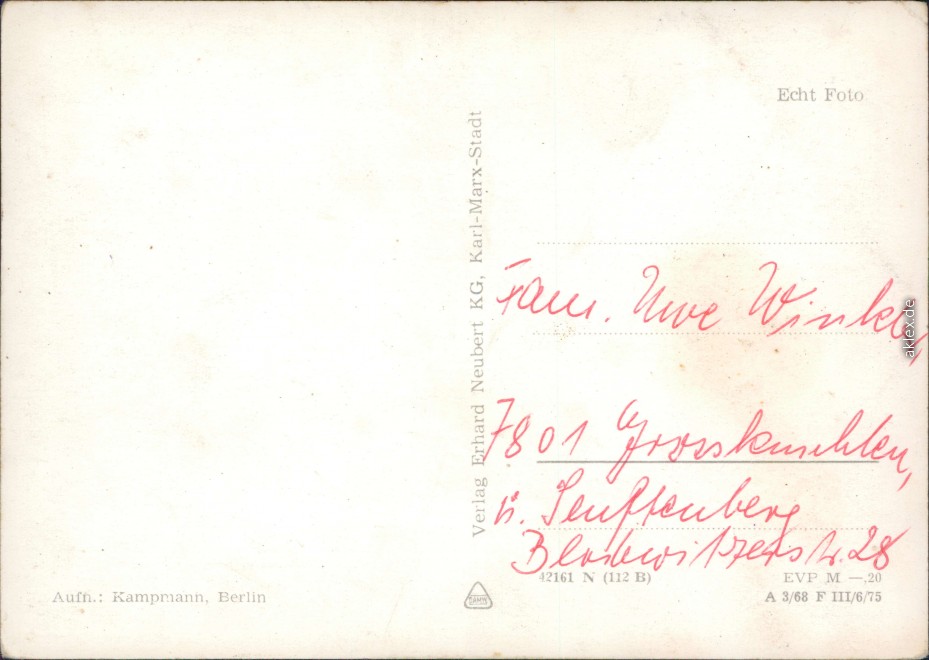 Echt Foto
Verlag Erhard Neubert KG, Karl-Marx-Stadt
Fam. Uwe
7801 Grosskmehlen,
ü. Senftenberg
28
42161 N (112 B)
EVP M —.20
A 3/68 F III/6/75
Aufn.: Kampmann, Berlin
aklex.de